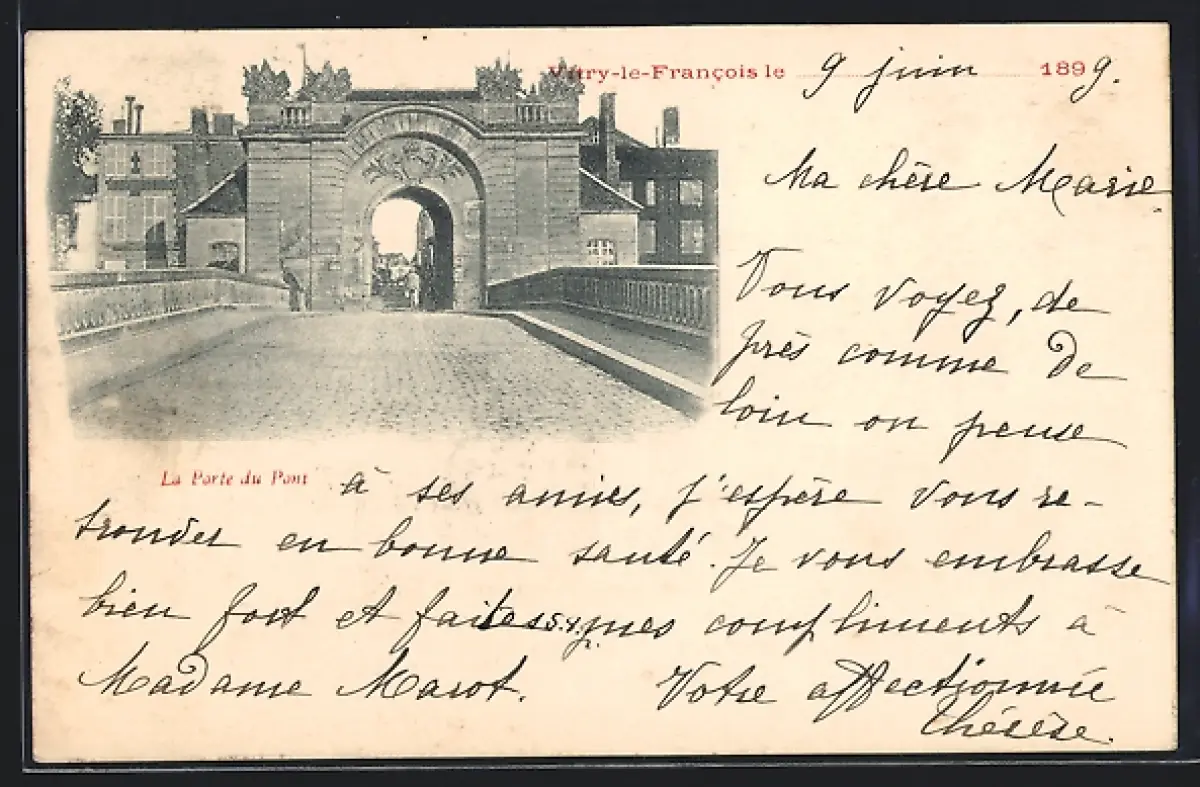 Vitry-le-François le 9 juin 1899.
Ma chère Marie.
Vous voyez, de
près comme de
loin on pense
La Porte du Pont
à ses amies, j'espère vous re-
trouver en bonne santé. Je vous embrasse
bien fort et faites s.v.p. mes compliments à
Madame Marot. Votre affectionnée
Thérèse.